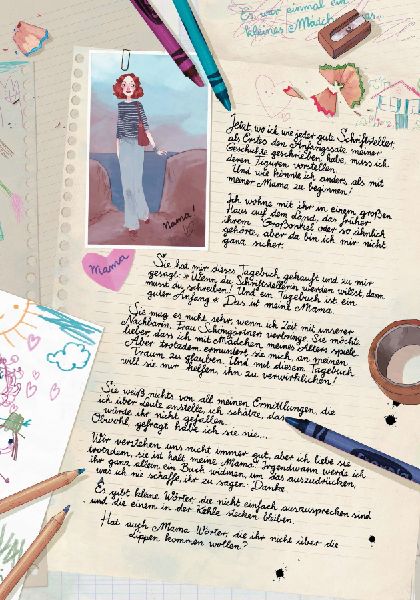 Es war einmal ein
kleines Mädchen
Jetzt wo ich wie jeder gute Schriftsteller
als Erstes die Anfangssätze meiner
Geschichte geschrieben habe, muss ich
deren Figuren vorstellen.
Und wie könnte ich anders, als mit
meiner Mama zu beginnen!
Ich wohne mit ihr in einem großen
Haus auf dem Land, das früher
ihrem Großonkel oder so ähnlich
gehörte, aber da bin ich mir nicht
ganz sicher.
Mama!
Mama
Sie hat mir dieses Tagebuch gekauft und zu mir
gesagt: « Wenn du Schriftstellerin werden willst, dann
musst du schreiben. Und ein Tagebuch ist ein
guter Anfang.» Das ist meine Mama.
Sie mag es nicht sehr, wenn ich Zeit mit unserer
Nachbarin, Frau Schöngärtner verbringe. Sie möchte
lieber, dass ich mit Mädchen meines Alters spiele.
Aber trotzdem ermuntert sie mich, an meinen
Traum zu glauben. Und mit diesem Tagebuch
will sie mir helfen, ihn zu verwirklichen!
Sie weiß nichts von all meinen Ermittlungen, die
ich über Leute anstelle, ich schätze, das
würde ihr nicht gefallen.
Obwohl, gefragt habe ich sie nie...
Wir verstehen uns nicht immer gut, aber ich liebe sie
trotzdem, sie ist halt meine Mama. Irgendwann werde ich
ihr ganz allein ein Buch widmen, um das auszudrücken,
was ich nie schaffe, ihr zu sagen: Danke.
Es gibt kleine Wörter, die nicht einfach auszusprechen sind
und die einem in der Kehle stecken bleiben.
Hat auch Mama Wörter, die ihr nicht über die
Lippen kommen wollen?